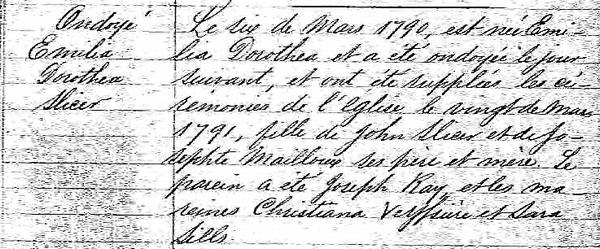 Ondoyé
Emilia
Dorothea
Slicer
Le six de Mars 1790, est née Emi-
lia Dorothea et a été ondoyée le jour
suivant, et ont été suppliées les cé-
rémonies de l'Eglise, le vingt de Mars
1791, fille de John Slicer et de Jo-
sephte Mailloux ses père et mère. Le
parein a été Joseph Ray, et les ma-
reines Christiana et Sara
Sills